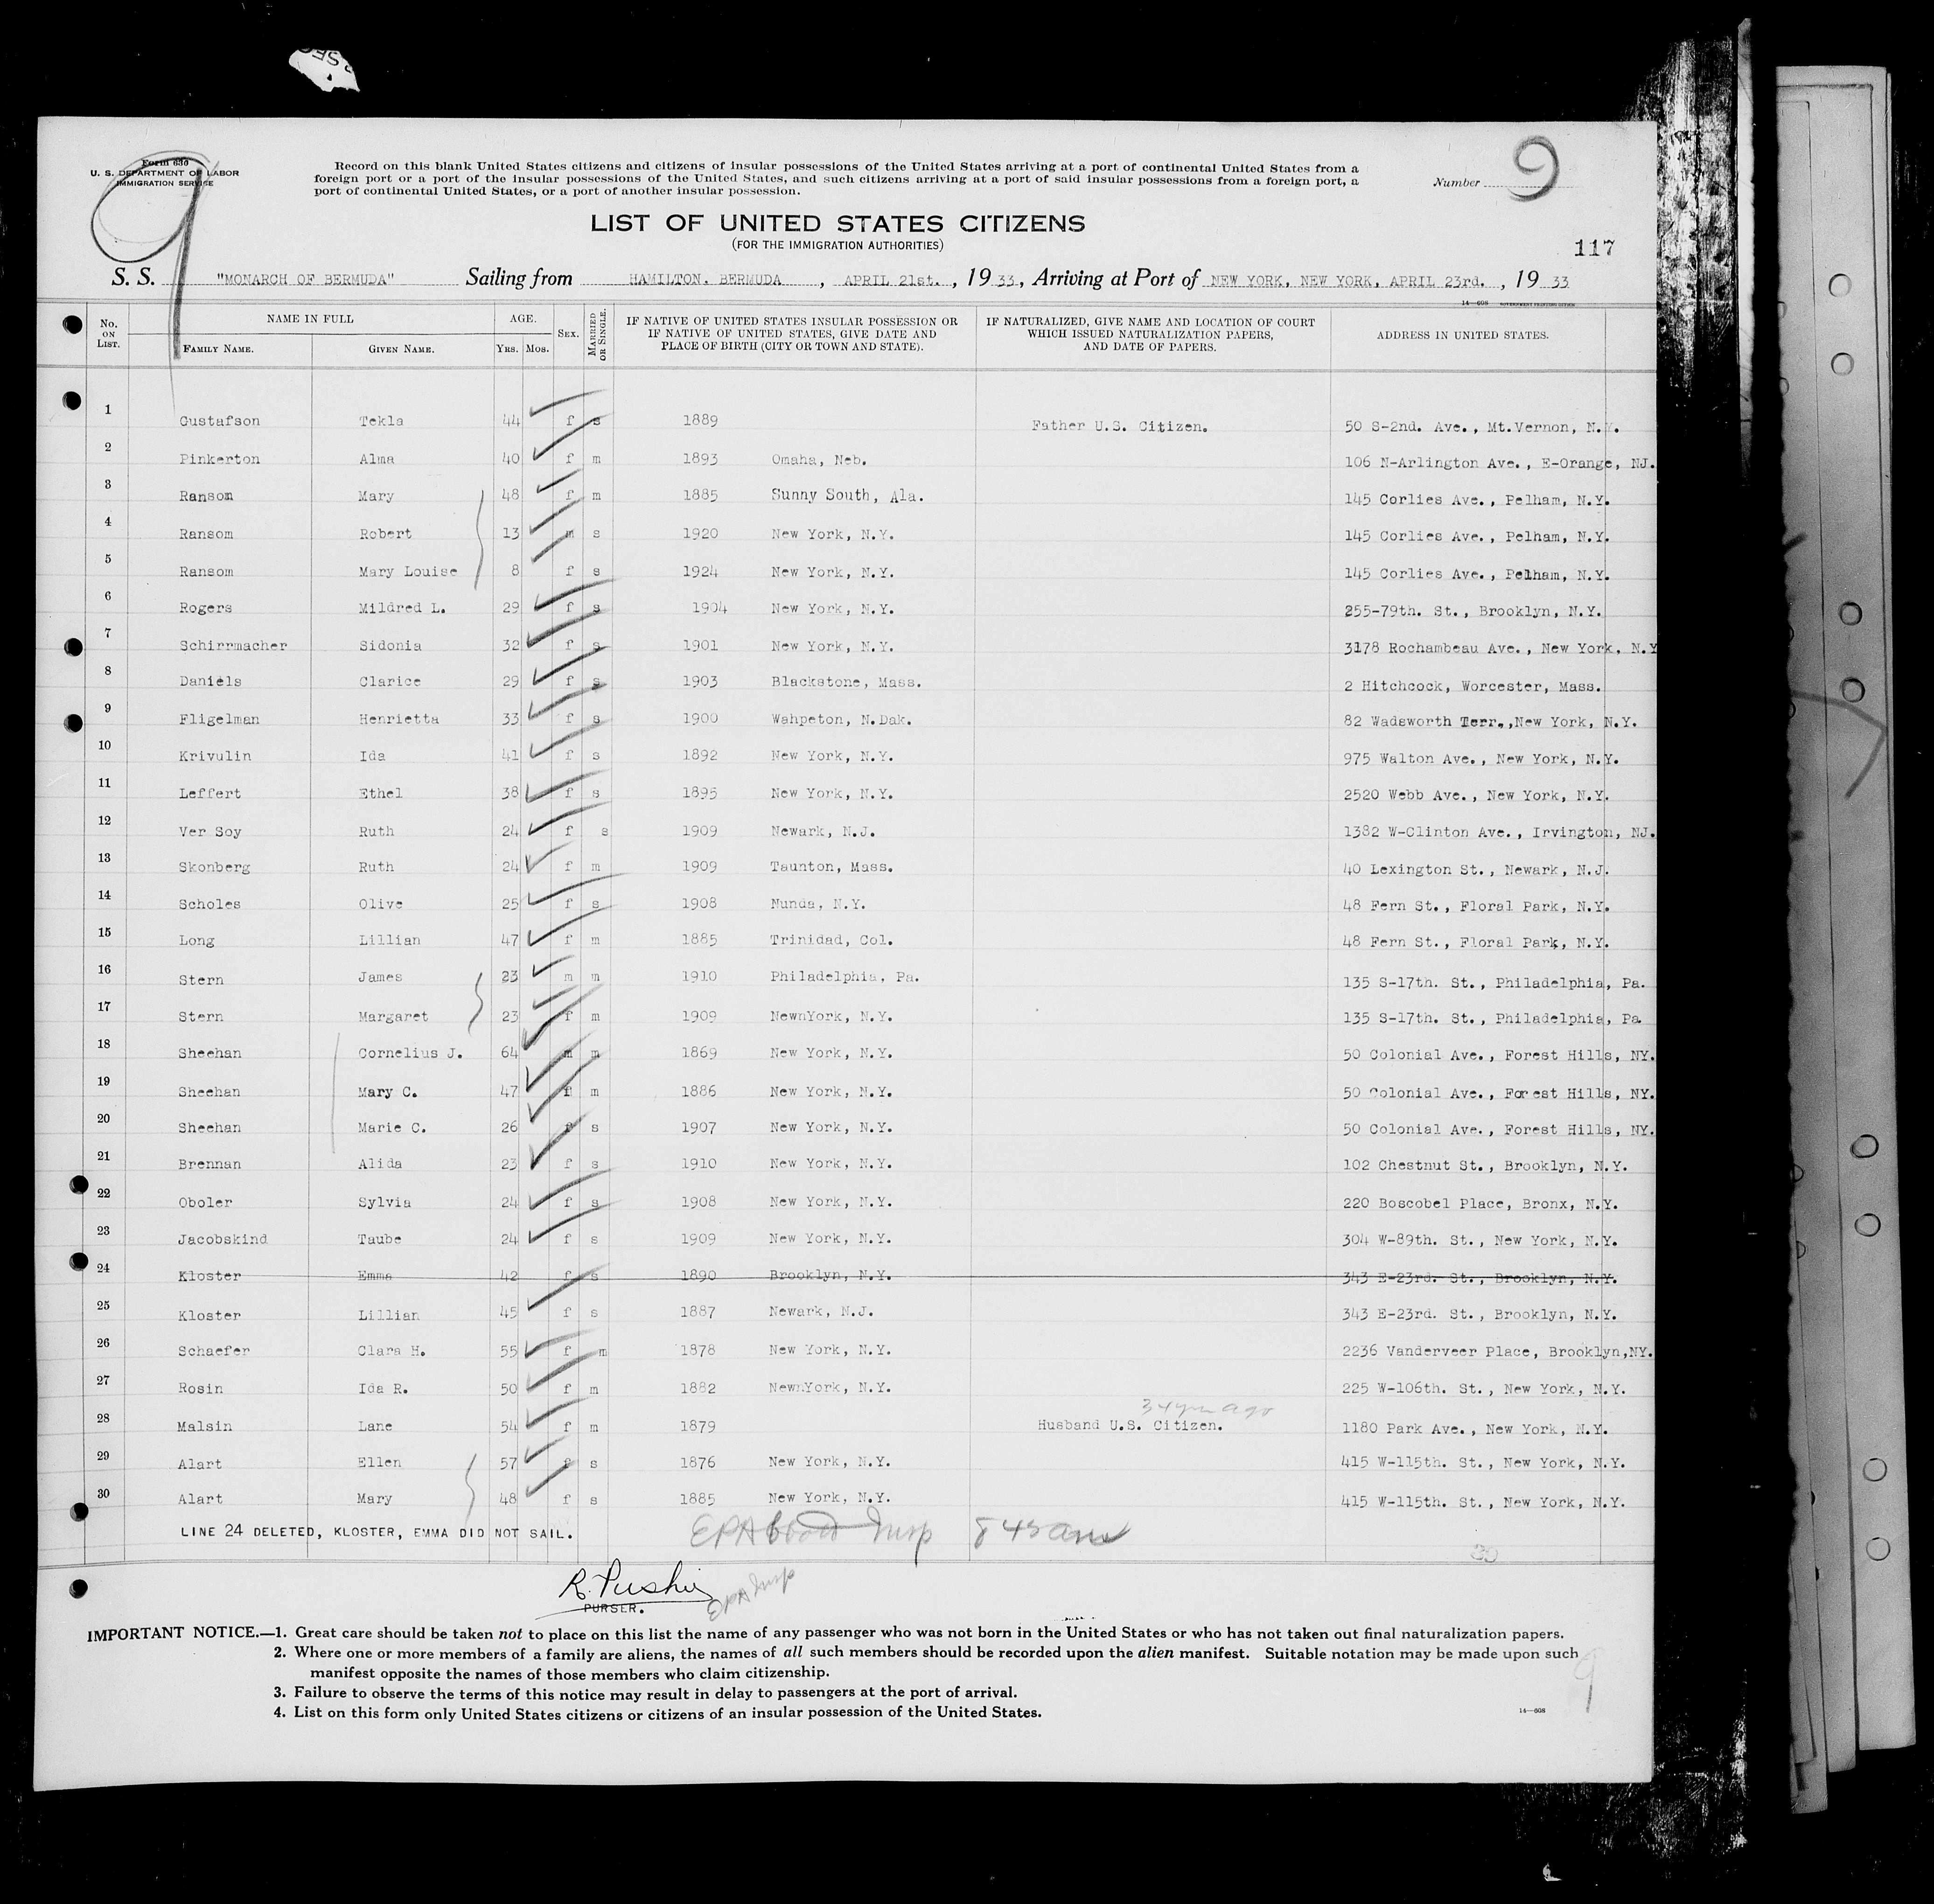 Form 630
U. S. DEPARTMENT OF LABOR
IMMIGRATION SERVICE
9
Record on this blank United States citizens and citizens of insular possessions of the United States arriving at a port of continental United States from a
foreign port or a port of the insular possessions of the United States, and such citizens arriving at a port of said insular possessions from a foreign port, a
port of continental United States, or a port of another insular possession.
Number 9
LIST OF UNITED STATES CITIZENS
(FOR THE IMMIGRATION AUTHORITIES)
117
S. S. "MONARCH OF BERMUDA" Sailing from HAMILTON. BERMUDA , APRIL 21st. , 19 33, Arriving at Port of NEW YORK, NEW YORK, APRIL 23rd. , 19 33
14—608 GOVERNMENT PRINTING OFFICE
No. ON LIST. NAME IN FULL FAMILY NAME. GIVEN NAME. AGE. YRS. MOS. SEX. MARRIED OR SINGLE. IF NATIVE OF UNITED STATES INSULAR POSSESSION OR IF NATIVE OF UNITED STATES, GIVE DATE AND PLACE OF BIRTH (CITY OR TOWN AND STATE). IF NATURALIZED, GIVE NAME AND LOCATION OF COURT WHICH ISSUED NATURALIZATION PAPERS, AND DATE OF PAPERS. ADDRESS IN UNITED STATES.
1 Gustafson Tekla 44 f s 1889 Father U.S. Citizen. 50 S-2nd. Ave., Mt.Vernon, N.Y.
2 Pinkerton Alma 40 f m 1893 Omaha, Neb. 106 N-Arlington Ave., E-Orange, NJ.
3 Ransom Mary 48 f m 1885 Sunny South, Ala. 145 Corlies Ave., Pelham, N.Y.
4 Ransom Robert 13 m s 1920 New York, N.Y. 145 Corlies Ave., Pelham, N.Y.
5 Ransom Mary Louise 8 f s 1924 New York, N.Y. 145 Corlies Ave., Pelham, N.Y.
6 Rogers Mildred L. 29 f s 1904 New York, N.Y. 255-79th. St., Brooklyn, N.Y.
7 Schirrmacher Sidonia 32 f s 1901 New York, N.Y. 3178 Rochambeau Ave., New York, N.Y
8 Daniels Clarice 29 f s 1903 Blackstone, Mass. 2 Hitchcock, Worcester, Mass.
9 Fligelman Henrietta 33 f s 1900 Wahpeton, N.Dak. 82 Wadsworth Terr.,New York, N.Y.
10 Krivulin Ida 41 f s 1892 New York, N.Y. 975 Walton Ave., New York, N.Y.
11 Leffert Ethel 38 f s 1895 New York, N.Y. 2520 Webb Ave., New York, N.Y.
12 Ver Soy Ruth 24 f s 1909 Newark, N.J. 1382 W-Clinton Ave., Irvington, NJ.
13 Skonberg Ruth 24 f m 1909 Taunton, Mass. 40 Lexington St., Newark, N.J.
14 Scholes Olive 25 f s 1908 Nunda, N.Y. 48 Fern St., Floral Park, N.Y.
15 Long Lillian 47 f m 1885 Trinidad, Col. 48 Fern St., Floral Park, N.Y.
16 Stern James 23 m m 1910 Philadelphia, Pa. 135 S-17th. St., Philadelphia, Pa.
17 Stern Margaret 23 f m 1909 NewnYork, N.Y. 135 S-17th. St., Philadelphia, Pa
18 Sheehan Cornelius J. 64 m m 1869 New York, N.Y. 50 Colonial Ave., Forest Hills, NY.
19 Sheehan Mary C. 47 f m 1886 New York, N.Y. 50 Colonial Ave., Forest Hills, NY.
20 Sheehan Marie C. 26 f s 1907 New York, N.Y. 50 Colonial Ave., Forest Hills, NY.
21 Brennan Alida 23 f s 1910 New York, N.Y. 102 Chestnut St., Brooklyn, N.Y.
22 Oboler Sylvia 24 f s 1908 New York, N.Y. 220 Boscobel Place, Bronx, N.Y.
23 Jacobskind Taube 24 f s 1909 New York, N.Y. 304 W-89th. St., New York, N.Y.
24 Kloster Emma 42 f s 1890 Brooklyn, N.Y. 343 E-23rd. St., Brooklyn, N.Y.
25 Kloster Lillian 45 f s 1887 Newark, N.J. 343 E-23rd. St., Brooklyn, N.Y.
26 Schaefer Clara H. 55 f m 1878 New York, N.Y. 2236 Vanderveer Place, Brooklyn,NY.
27 Rosin Ida R. 50 f m 1882 NewnYork, N.Y. 225 W-106th. St., New York, N.Y.
34 yrs ago
28 Malsin Lane 54 f m 1879 Husband U.S. Citizen. 1180 Park Ave., New York, N.Y.
29 Alart Ellen 57 f s 1876 New York, N.Y. 415 W-115th. St., New York, N.Y.
30 Alart Mary 48 f s 1885 New York, N.Y. 415 W-115th. St., New York, N.Y.
LINE 24 DELETED, KLOSTER, EMMA DID NOT SAIL. EPAbbott Insp 845am
30
R. Pushie EPA Insp
PURSER.
IMPORTANT NOTICE.—1. Great care should be taken not to place on this list the name of any passenger who was not born in the United States or who has not taken out final naturalization papers.
2. Where one or more members of a family are aliens, the names of all such members should be recorded upon the alien manifest. Suitable notation may be made upon such
manifest opposite the names of those members who claim citizenship.
3. Failure to observe the terms of this notice may result in delay to passengers at the port of arrival.
4. List on this form only United States citizens or citizens of an insular possession of the United States.
14—608
9